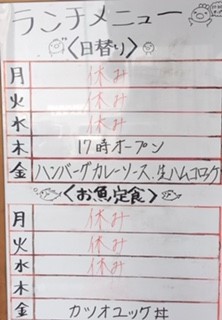 ランチメニュー
〈日替り〉
月 休み
火 休み
水 休み
木 17時オープン
金 ハンバーグカレーソース、生ハムコロッケ
〈お魚定食〉
月 休み
火 休み
水 休み
木
金 カツオユッケ丼